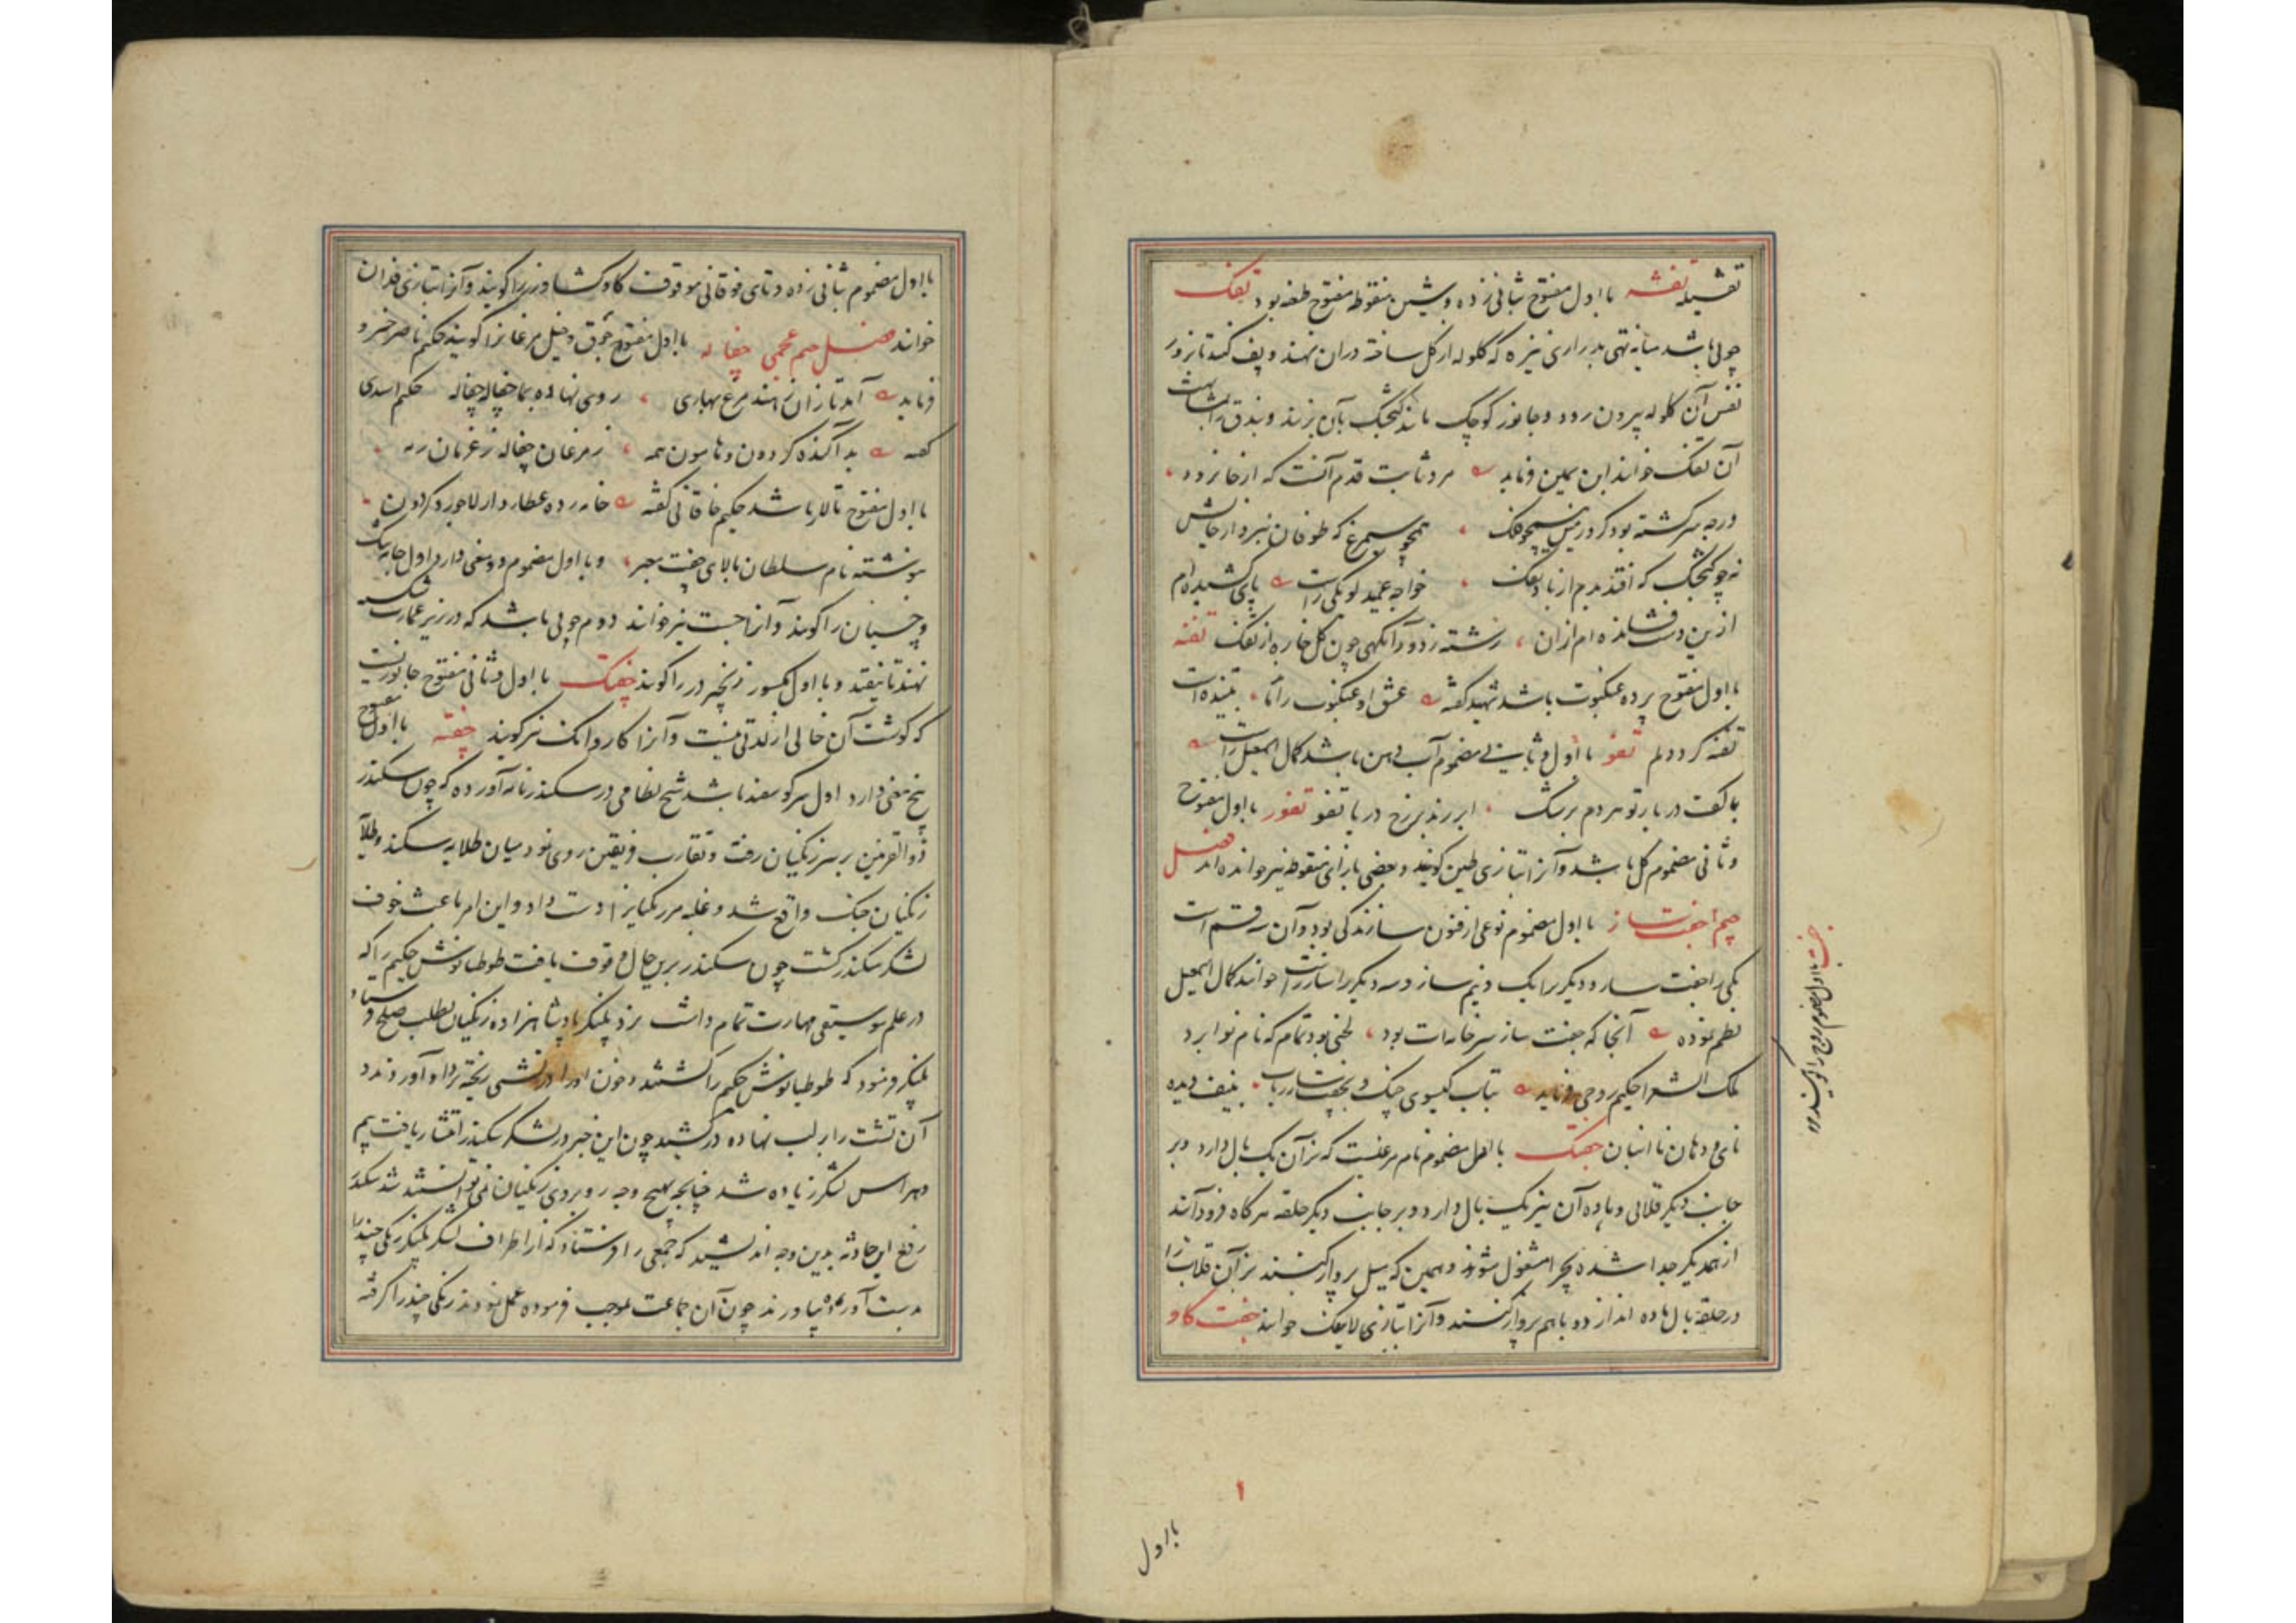 تفشیله تفشه با اول مفتوح بثانی زده و شین منقوطه مفتوح طعنه بود تفک
چوبی باشد میانه تهی بدرازی نیزه که گلوله از کل ساخته دران نهند و پف کنند تا بزور
نفس آن گلوله بیرون رود و جانور کوچک مانند کنجشک بآن بزنند و بندق
آن تفک خوانند ابن یمین فرماید مرد ثابت قدم آنست که از جا نرود
ورچه سرکشته بود کرد زمین همچو فلک همچو سیمرغ که طوفان نبرد از جایش
نه چو کنجشک که افتد بدم از باد تفک خواجه عمید لوبکی راست پای کشیده ام
ازین دست فشانده ام ازان رشته زرد و آنکهی چون کل خاره از تفک تفنه
با اول مفتوح پرده عنکبوت باشد شهید گفته عشق او عنکبوت را ماند بتنیده است
تفنه کرد دلم تفو با اول و ثانی مضموم آب دهن باشد کمال اسمعیل راست
با کفت دربار تو هر دم برشک ابر زند برزخ دریا تفو تفور با اول مفتوح
و ثانی مضموم کل باشد و آنرا بتازی طین کویند و بعضی بازای منقوطه نیز خوانده اند فصل
جیم جفت ساز با اول مضموم نوعی از فنون سازندکی بود و آن سه قسم است
یکی را جفت ساز و دیکر را یک و نیم ساز و سه دیکر را ساز راست خوانند کمال اسمعیل
نظم نموده آنجا که جفت ساز سر خانه ات بود لحنی بود تمام که نام نوا برد
ملک الشعرا حکیم روحی فرماید بتاب کیسوی چنک و بجفت ساز رباب بنیف دیده
نای و دهان نا انبان جفتک با اول مضموم نام مرغیست که نر آن یک بال دارد و بر
جانب دیکر قلابی و ماده آن نیز یک بال دارد و بر جانب دیکر حلقه هر کاه فرود آیند
از همدیکر جدا شده بچرا مشغول شوند و همین که میل پرواز کنند نر آن قلاب را
در حلقه بال ماده انداز دو باهم پرواز کنند و آنرا بتازی لاینفک خوانند جفت کاو
با اول
با اول مضموم بثانی زده و تای فوقانی موقوف کاو کشاورز را کویند و آنرا بتازی فدان
خوانند فصل جیم عجمی چفاله با اول مفتوح جوق و خیل مرغانرا کویند حکیم ناصر خسرو
فرماید آمد تازان ز هند مرغ بهاری روی نهاده بما چفاله چفاله حکیم اسدی
گفته بدآکنده کردون و هامون همه ز مرغان چفاله ز غرمان رمه
با اول مفتوح تالار باشد حکیم خاقانی گفته خامه زده عطارد از لاجورد کردون
بنوشته نام سلطان بالای چفت بیجر و با اول مضموم دو معنی دارد اول جامه تنک
و چسبان را کویند و آنرا چست نیز خوانند دوم چوبی باشد که در زیر عمارت شکسته
نهند تا نیفتد و با اول مکسور زنجیر در را کویند چفتک با اول و ثانی مفتوح جانوریست
که کوشت آن خالی از لذتی نیست و آنرا کاروانک نیز کویند چفته با اول مفتوح
پنج معنی دارد اول سر کوسفند باشد شیخ نظامی در سکندرنامه آورده که چون سکندر
ذوالقرنین بر سر زنکیان رفت و تقارب فریقین روی نمود میان طلایه سکندر و طلایه
زنکیان جنک واقع شد و غلبه مر زنکیانرا دست داد و این امر باعث خوف
لشکر سکندر کشت چون سکندر برین حال وقوف یافت طوطیانوش حکیم را که
در علم موسیقی مهارت تمام داشت نزد پلنکر پادشاهزاده زنکیان بطلب صلح فرستاد
پلنکر فرمود که طوطیانوش حکیم را کشتند و خون او را در تشتی ریخته نزد او آوردند و
آن تشت را بر لب نهاده درکشید چون این خبر در لشکر سکندر انتشار یافت بیم
و هراس لشکر زیاده شد چنانچه بهیچ وجه روبروی زنکیان نمی توانستند شد سکندر
رفع این حادثه بدین وجه اندیشید که جمعی را فرستاد که از اطراف لشکر پلنکر زنکی چند را
بدست آورده بیاورند چون آن جماعت بموجب فرموده عمل نمودند زنکی چند را کرفته